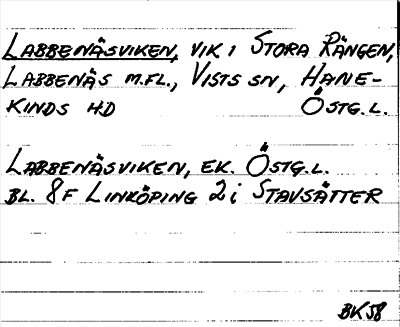 LABBENÄSVIKEN, VIK I STORA RÄNGEN,
LABBENÄS M.FL., VISTS SN, HANE-
KINDS HD ÖSTG.L.
LABBENÄSVIKEN, EK. ÖSTG.L.
BL. 8F LINKÖPING 2i STAVSÄTTER
BK58